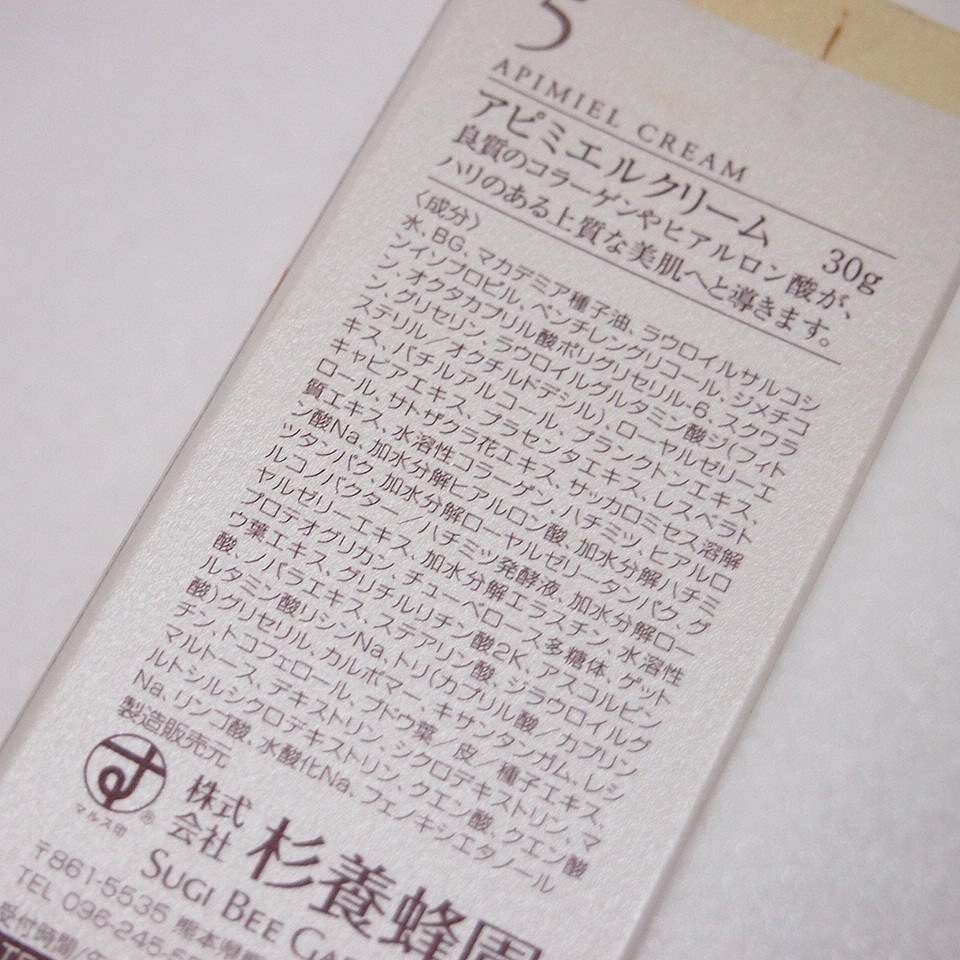 5
APIMIEL CREAM
アピミエルクリーム 30g
良質のコラーゲンやヒアルロン酸が、
ハリのある上質な美肌へと導きます。
〈成分〉
水、BG、マカデミア種子油、ラウロイルサルコシ
ンイソプロピル、ペンチレングリコール、ジメチコ
ン、オクタカプリル酸ポリグリセリル-6、スクワラ
ン、グリセリン、ラウロイルグルタミン酸ジ(フィト
ステリル/オクチルドデシル)、ローヤルゼリーエ
キス、バチルアルコール、プランクトンエキス、
キャビアエキス、プラセンタエキス、レスベラト
ロール、サトザクラ花エキス、サッカロミセス溶解
質エキス、水溶性コラーゲン、ハチミツ、ヒアルロ
ン酸Na、加水分解ヒアルロン酸、加水分解ハチミ
ツタンパク、加水分解ローヤルゼリータンパク、グ
ルコノバクター/ハチミツ発酵液、加水分解ロー
ヤルゼリーエキス、加水分解エラスチン、水溶性
プロテオグリカン、チューベロース多糖体、ゲット
ウ葉エキス、グリチルリチン酸2K、アスコルビン
酸、ノバラエキス、ステアリン酸、ジラウロイルグ
ルタミン酸リシンNa、トリ(カプリル酸/カプリン
酸)グリセリル、カルボマー、キサンタンガム、レシ
チン、トコフェロール、ブドウ葉/皮/種子エキス、
マルトース、デキストリン、シクロデキストリン、マ
ルトシルシクロデキストリン、クエン酸、クエン酸
Na、リンゴ酸、水酸化Na、フェノキシエタノール
製造販売元
マルス印
®
株式会社 杉養蜂園
SUGI BEE GA
〒861-5535 熊本県
TEL 096-245-55
受付時間/